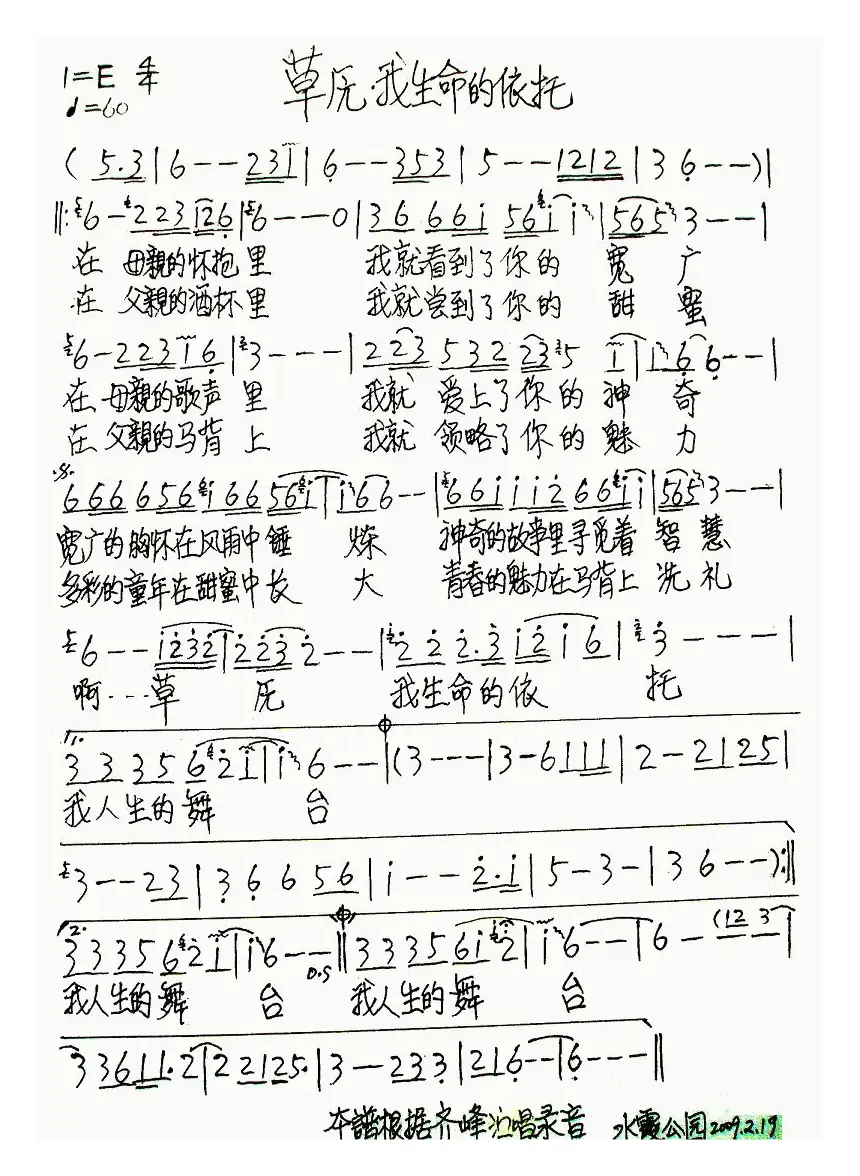 1=E 4/4 草原·我生命的依托
♩=60
( 5.3 | 6 - - 231 | 6 - - 353 | 5 - - 1212 | 3 6 - - ) |
‖: 6 - 2 23 126 | 6 - - - 0 | 36 66i 56i i | 565 3 - - - |
在 母親的怀抱里 我就看到了你的 宽 广
在 父親的酒杯里 我就尝到了你的 甜 蜜
6 - 2 2 3 1 6 | 3 - - - | 2 23 532 23 5 i | i 6 6 - - |
在 母親的歌声 里 我就 爱上了你的 神 奇
在 父親的马背 上 我就 领略了你的 魅 力
6 66 656 i 66 56i | i 6 6 - - | 6 6 i i i 2 6 6 i i | 565 3 - - |
宽广的胸怀在风雨中锤 炼 神奇的故事里寻觅着 智 慧
多彩的童年在甜蜜中长 大 青春的魅力在马背上 洗 礼
6 - - i232 | 2 23 2 - - | 2 2 2.3 i 2 i 6 | 3 - - - |
啊··· 草 原 我生命的依 托
1. 3 3 3 5 6 2 i | i 6 - - | (3 - - - | 3 - 6 1 1 1 | 2 - 2 1 2 5 |
我人生的舞 台
3 - - 23 | 3 6 6 56 | i - - 2.i | 5 - 3 - | 3 6 - - ) :‖
2. 3 3 3 5 6 2 i | i 6 - - ‖ 3 3 3 5 6 i 2 | i 6 - - | 6 - (12 3 |
D.S
我人生的舞 台 我人生的舞 台
3 3 6 1 1. 2 | 2 2 1 2 5. | 3 - 2 3 3 | 2 1 6 - - | 6 - - - ‖
本譜根据齐峰演唱录音 水霞公园2009.2.19